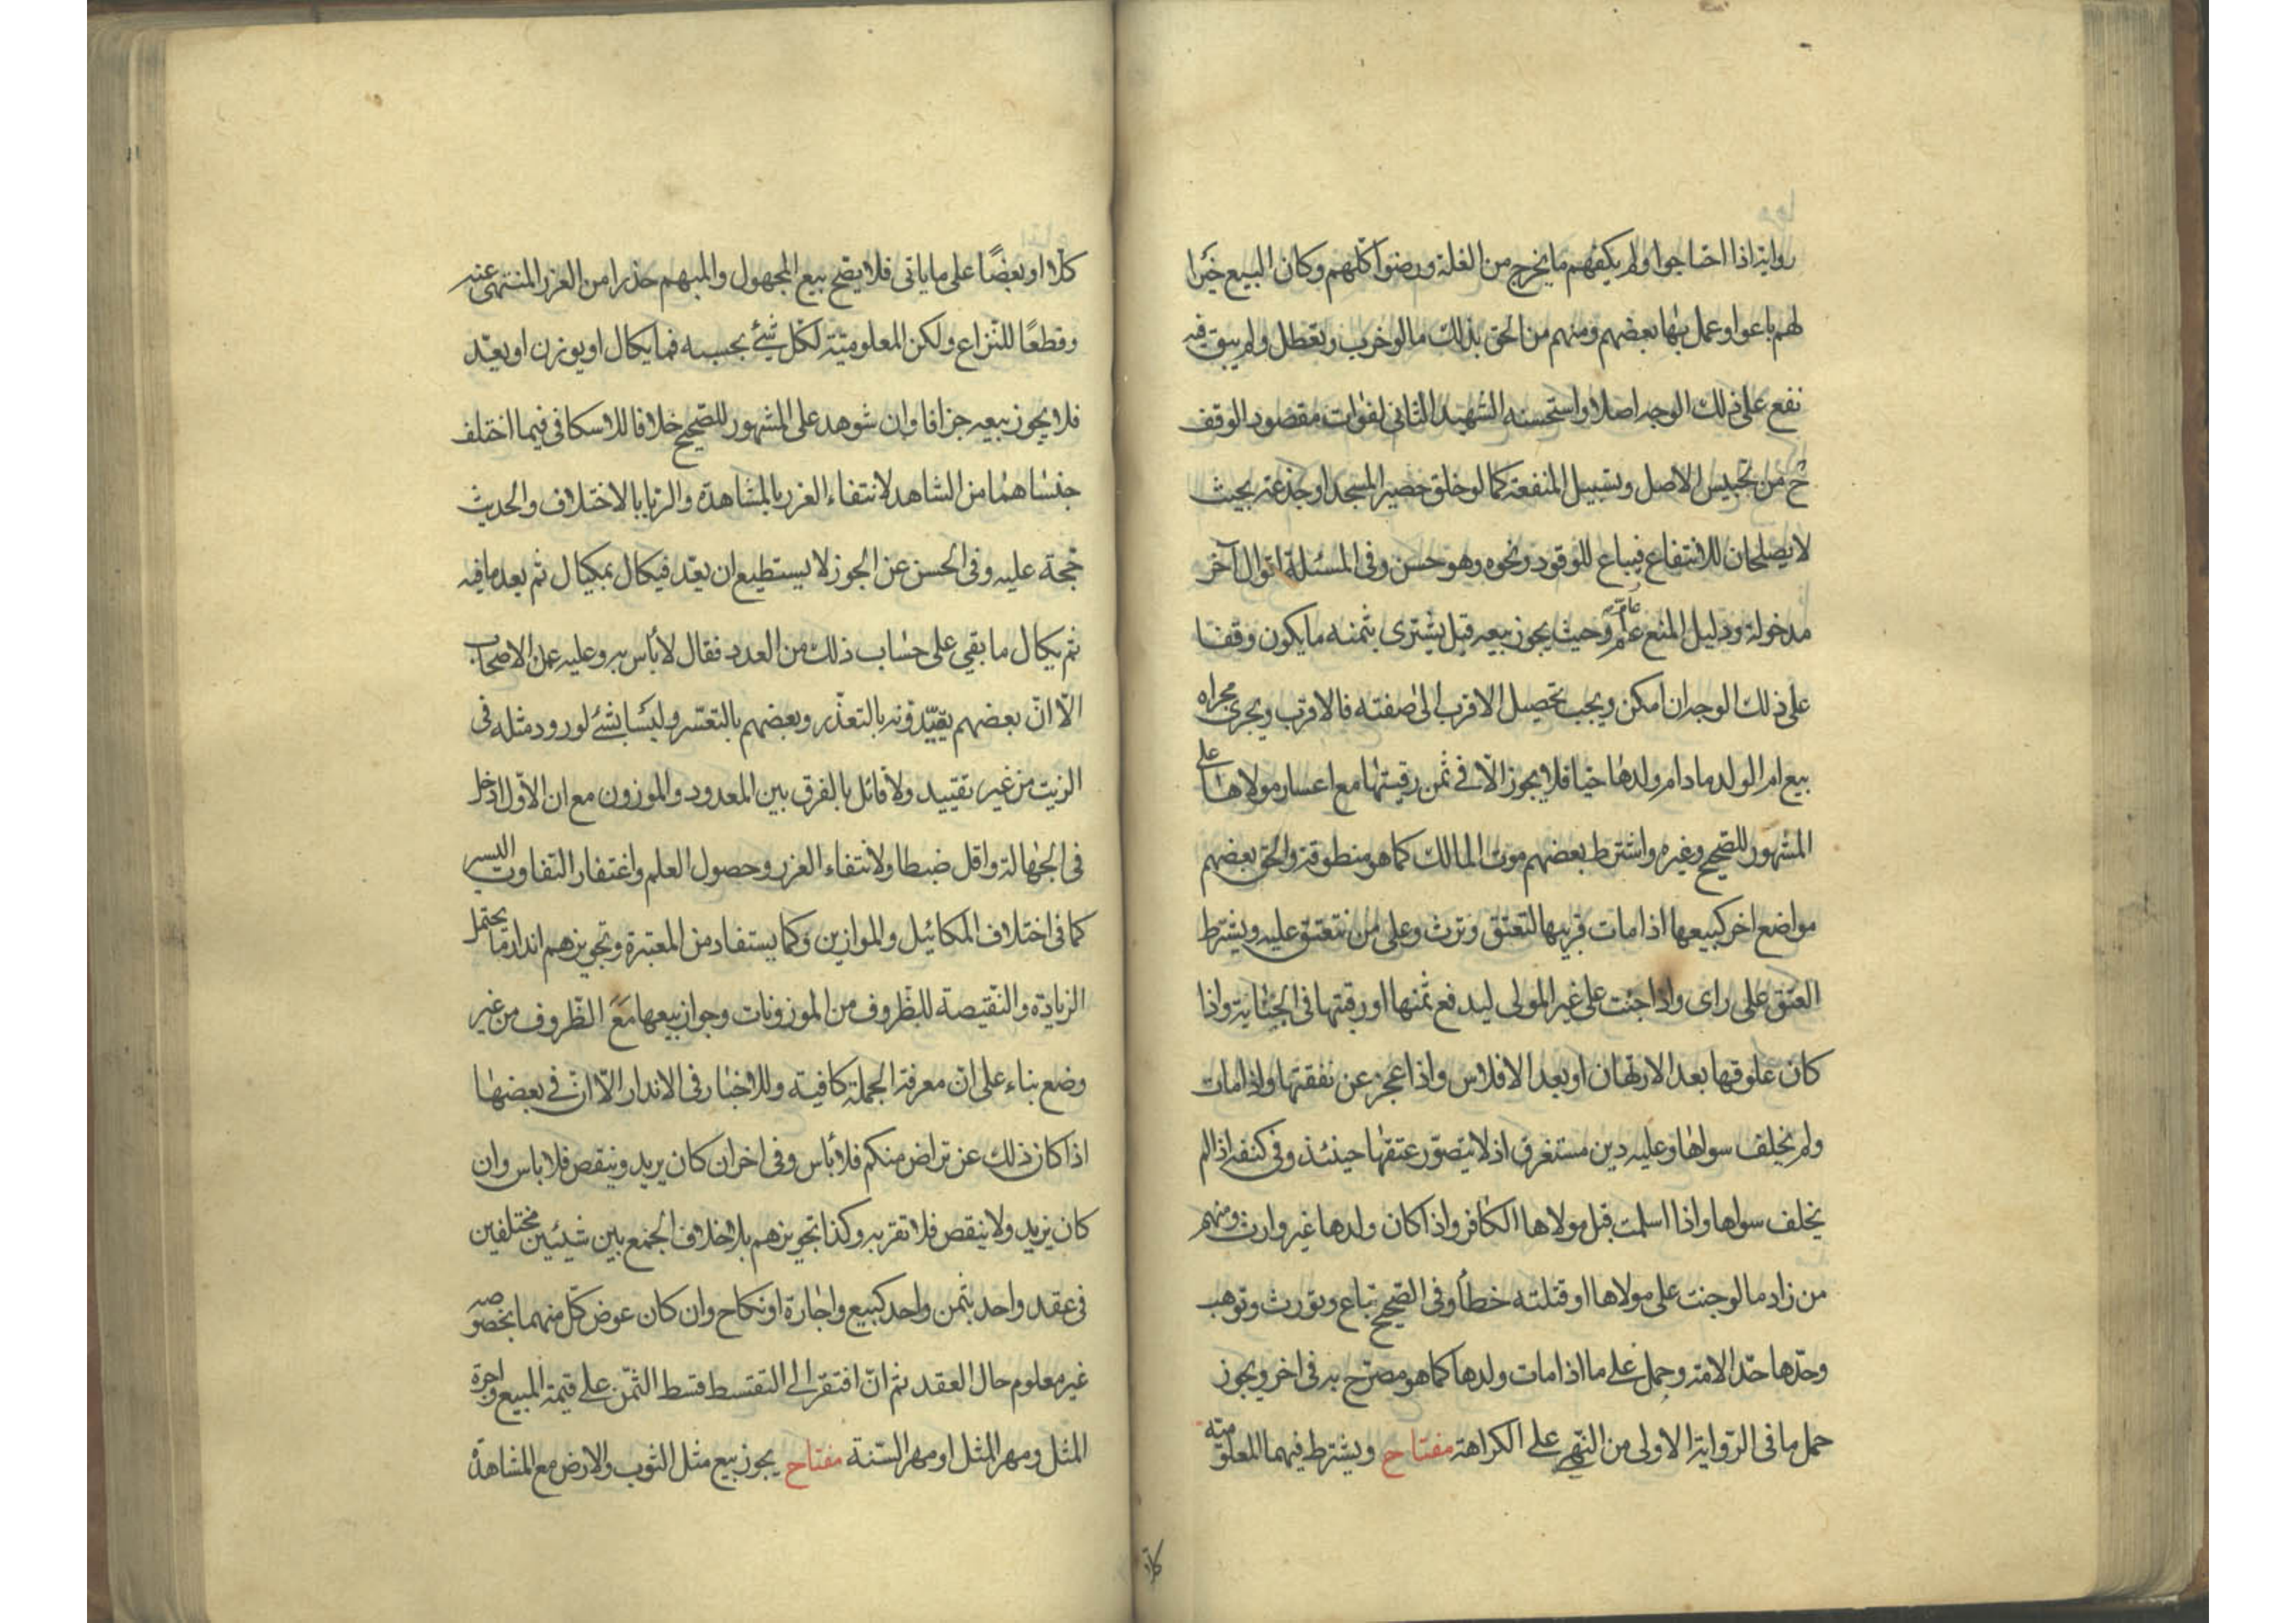 رواية اذا احتاجوا ولم يكفهم ما يخرج من الغلة ورضوا كلهم وكان البيع خيرا
لهم باعوا وعمل بها بعضهم ومنهم من الحق بذلك ما لو خرب وتعطل ولم يبق فيه
نفع على ذلك الوجه اصلا واستحسنه الشهيد الثاني لفوات مقصود الوقف
ح من تحبيس الاصل وتسبيل المنفعة كما لو خلق حصير المسجد او جذعه بحيث
لا يصلحان للانتفاع فيباع للوقود ونحوه وهو حسن وفى المسئلة اقوال آخر
مدخولة ودليل المنع عام وحيث يجوز بيعه قيل يشترى بثمنه ما يكون وقفا
على ذلك الوجه ان امكن ويجب تحصيل الاقرب الى صفته فالاقرب ويجرى مجراه
بيع ام الولد ما دام ولدها حيا فلا يجوز الا فى ثمن رقبتها مع اعسار مولاها على
المشهور للصحيح وغيره واشترط بعضهم موت المالك كما هو منطوقه والحق بعضهم
مواضع اخر كبيعها اذا مات قريبها لتعتق وترث وعلى من تنعتق عليه وبشرط
العتق على راى واذا جنت على غير المولى ليدفع ثمنها او رقبتها فى الجناية واذا
كان علوقها بعد الارتهان او بعد الافلاس واذا عجز عن نفقتها واذا مات
ولم يخلف سواها وعليه دين مستغرق اذ لا يتصور عتقها حينئذ وفى كفنه اذا لم
يخلف سواها واذا اسلمت قبل مولاها الكافر واذا كان ولدها غير وارث ومنهم
من زاد ما لو جنت على مولاها او قتلته خطأ وفى الصحيح تباع وتورث وتوهب
وحدها حد الامة وحمل على ما اذا مات ولدها كما هو مصرح به فى اخر ويجوز
حمل ما فى الرواية الاولى من النهى على الكراهة مفتاح ويشترط فيهما المعلومية
كلا او
كلا او بعضا على ما ياتى فلا يصح بيع المجهول والمبهم حذرا من الغرر المنتهى عنه
وقطعا للنزاع ولكن المعلومية لكل شئ بحسبه فما يكال او يوزن او يعد
فلا يجوز بيعه جزافا وان شوهد على المشهور للصحيح خلافا للاسكافى فيما اختلف
جنساهما من الشاهد لانتفاء الغرر بالمشاهدة والربا بالاختلاف والحديث
حجة عليه وفى الحسن عن الجوز لا يستطيع ان يعد فيكال بمكيال ثم يعد ما فيه
ثم يكال ما بقى على حساب ذلك من العدد فقال لا بأس به وعليه عمل الاصحاب
الا ان بعضهم يقيدونه بالتعذر وبعضهم بالتعسر وليسا بشئ لورود مثله فى
الزيت من غير تقييد ولا قائل بالفرق بين المعدود والموزون مع ان الاول ادخل
فى الجهالة واقل ضبطا ولانتفاء الغرر وحصول العلم واغتفار التفاوت اليسير
كما فى اختلاف المكائيل والموازين وكما يستفاد من المعتبرة وتجويزهم اندار ما يحتمل
الزيادة والنقيصة للظروف من الموزونات وجواز بيعها مع الظروف من غير
وضع بناء على ان معرفة الجملة كافية وللاخبار فى الاندار الا ان فى بعضها
اذا كان ذلك عن تراض منكم فلا بأس وفى اخر ان كان يزيد وينقص فلا باس وان
كان يزيد ولا ينقص فلا تقربه وكذا تجويزهم بلا خلاف الجمع بين شيئين مختلفين
فى عقد واحد بثمن واحد كبيع واجارة او نكاح وان كان عوض كل منهما بخصوصه
غير معلوم حال العقد ثم ان افتقر الى التقسيط قسط الثمن على قيمة المبيع واجرة
المثل ومهر المثل او مهر السنة مفتاح يجوز بيع مثل الثوب والارض مع المشاهدة